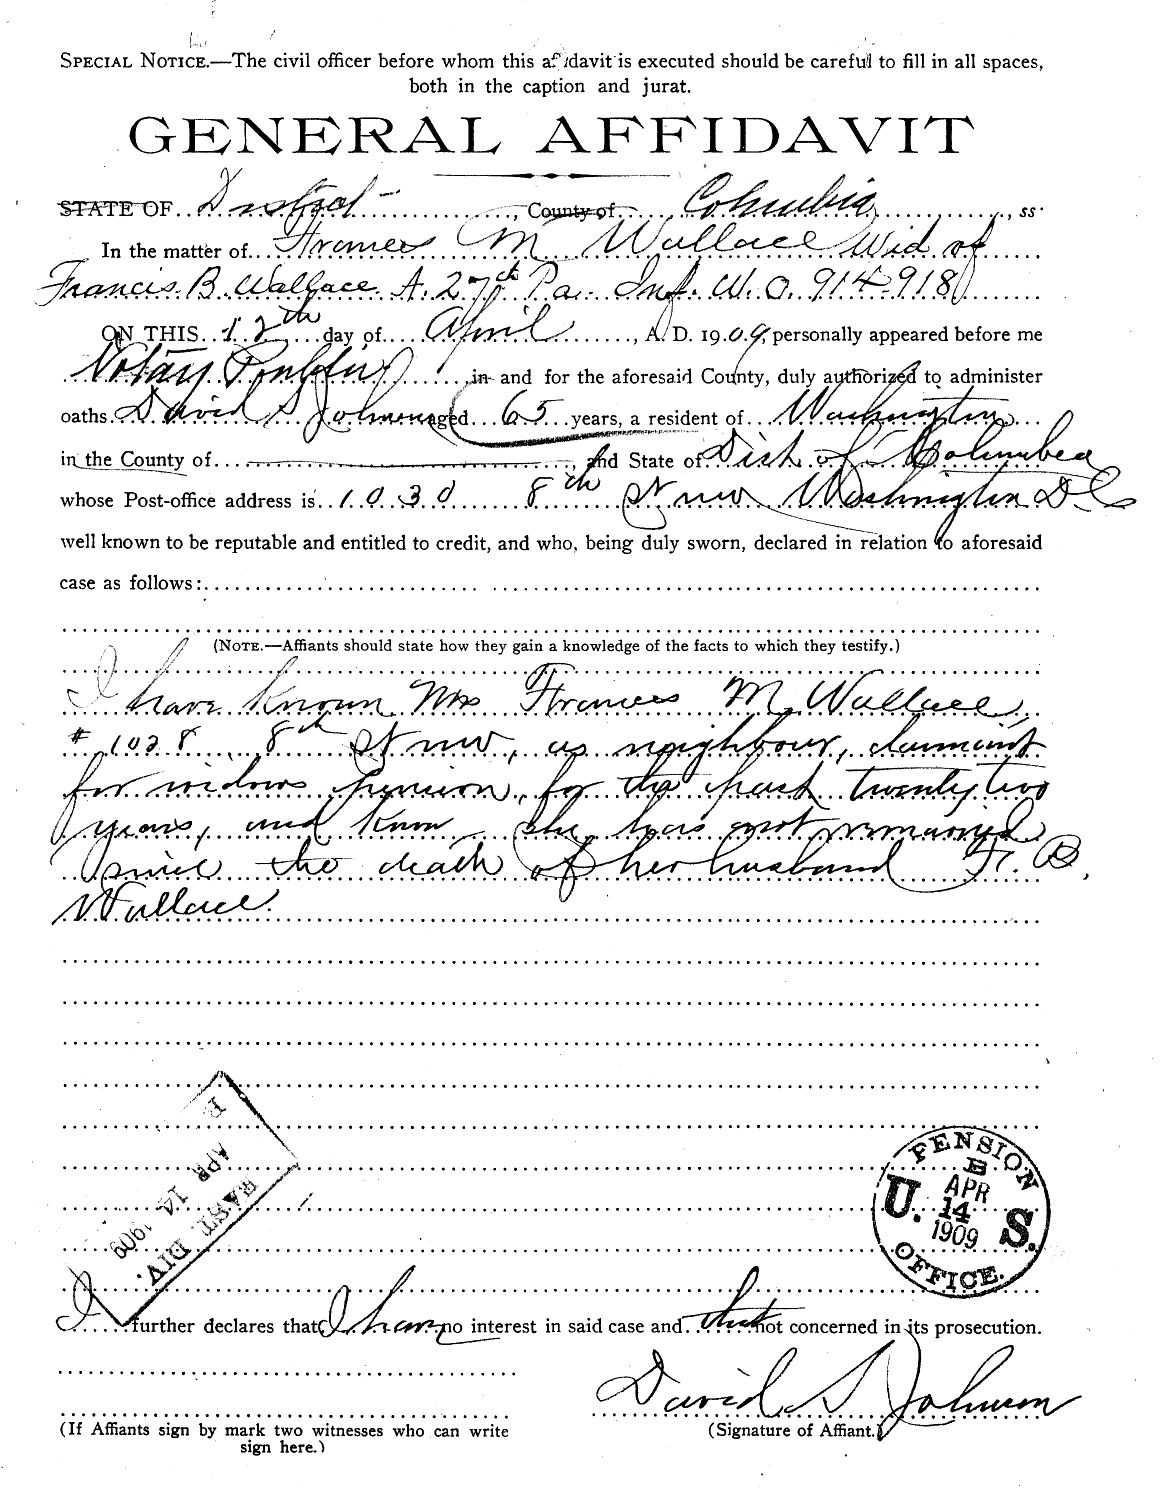 SPECIAL NOTICE.—The civil officer before whom this affidavit is executed should be careful to fill in all spaces,
both in the caption and jurat.
GENERAL AFFIDAVIT
STATE OF District, County of Columbia, ss.
In the matter of Frances M Wallace Wid of
Francis B Wallace A. 27th Pa. Inf. W.O. 914918
ON THIS 12th day of April, A. D. 1909, personally appeared before me
Notary Public, in and for the aforesaid County, duly authorized to administer
oaths David S Johnson aged 65 years, a resident of Washington
in the County of, and State of Dist. of Columbia
whose Post-office address is 1030 8th St nw Washington D.C.
well known to be reputable and entitled to credit, and who, being duly sworn, declared in relation to aforesaid
case as follows:
(NOTE.—Affiants should state how they gain a knowledge of the facts to which they testify.)
I have known Mrs Frances M Wallace,
# 1028 8th St nw, as neighbour, claimant
for widows pension, for the past twenty two
years, and know she has not remarried
since the death of her husband F. B.
Wallace.
E
APR 14 1909
EAST. DIV.
PENSION
B
APR
U. 14 S.
1909
OFFICE.
I further declares that I have no interest in said case and not concerned in its prosecution.
David S Johnson
(If Affiants sign by mark two witnesses who can write
sign here.)
(Signature of Affiant.)